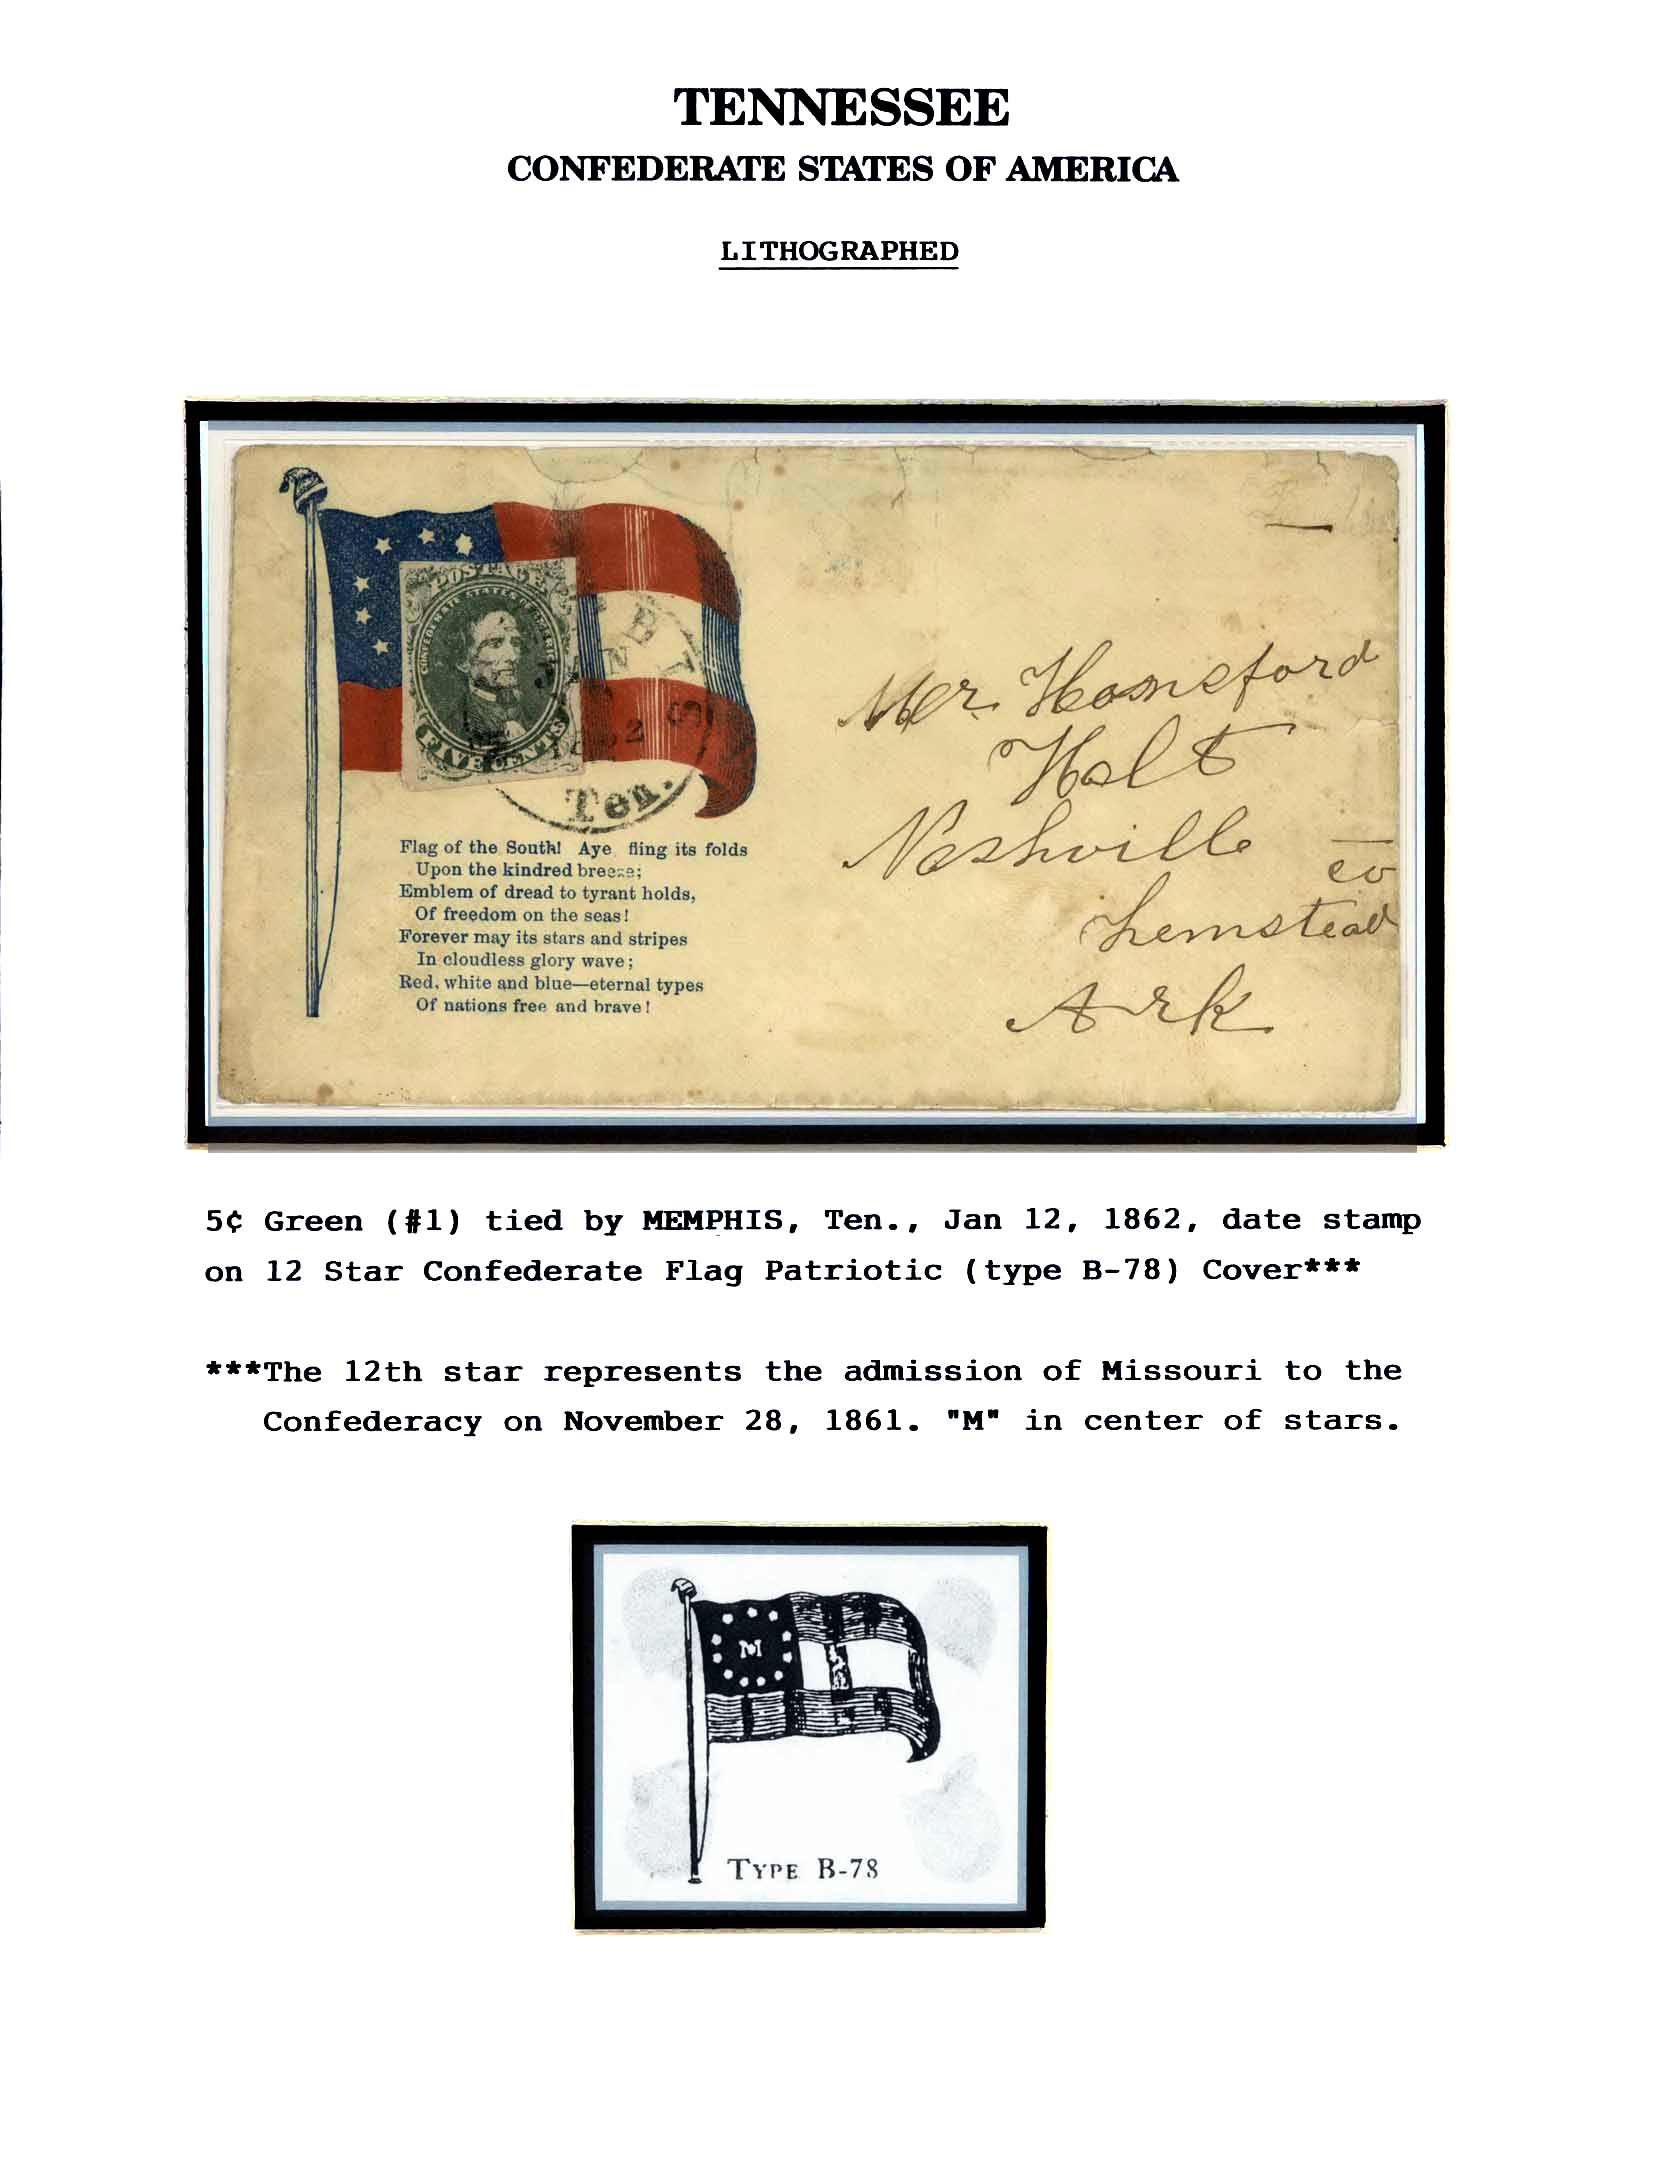 TENNESSEE
CONFEDERATE STATES OF AMERICA
LITHOGRAPHED
POSTAGE
CONFEDERATE STATES OF AMERICA
FIVE CENTS
JAN
1862
Ten.
Flag of the South! Aye fling its folds
Upon the kindred breeze;
Emblem of dread to tyrant holds,
Of freedom on the seas!
Forever may its stars and stripes
In cloudless glory wave;
Red, white and blue—eternal types
Of nations free and brave!
Mr. Hornsford
Holt
Nashville
co
Hemstead
Ark
5¢ Green (#1) tied by MEMPHIS, Ten., Jan 12, 1862, date stamp
on 12 Star Confederate Flag Patriotic (type B-78) Cover***
***The 12th star represents the admission of Missouri to the
Confederacy on November 28, 1861. "M" in center of stars.
M
TYPE B-78